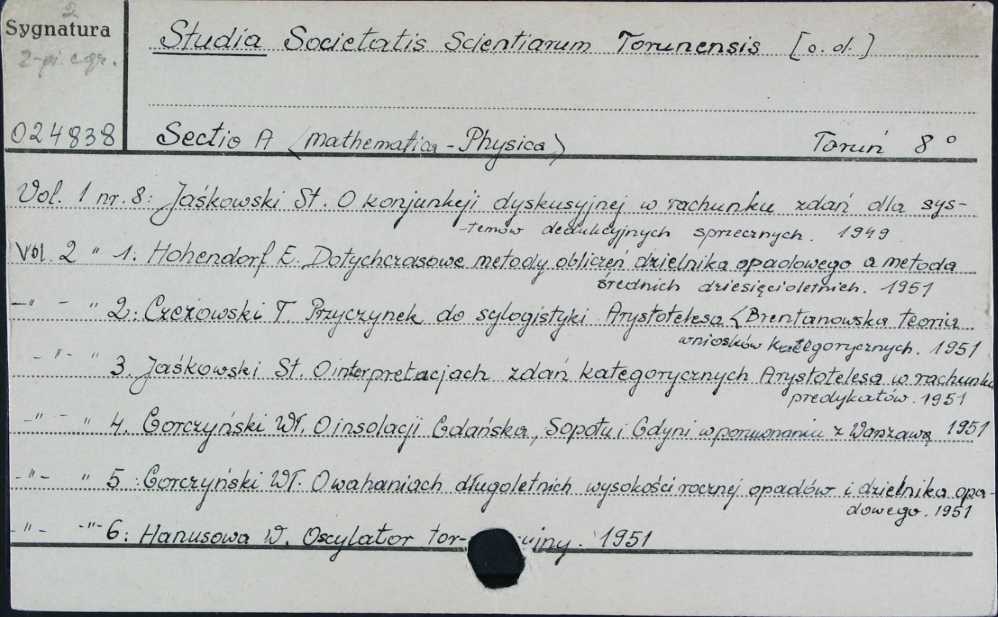 2
Sygnatura
Studia Societatis Scientiarum Torunensis [o. d.]
024838
Sectio A (Mathematica - Physica) Toruń 8°
Vol. 1 nr. 8: Jaśkowski St. O konjunkcji dyskusyjnej w rachunku zdań dla sys-
-temów dedukcyjnych sprzecznych. 1949
Vol. 2 " 1. Hohendorf E. Dotychczasowe metody obliczeń dzielnika opadowego a metoda
średnich dziesięcioletnich. 1951
-"- " 2: Czeżowski T. Przyczynek do sylogistyki Arystotelesa (Brentanowska teoria
wniosków kategorycznych. 1951
-"- " 3. Jaśkowski St. O interpretacjach zdań kategorycznych Arystotelesa w rachunku
predykatów. 1951
-"- " 4. Gorczyński Wł. O insolacji Gdańska, Sopotu i Gdyni w porównaniu z Warszawą 1951
-"- " 5: Gorczyński Wł. O wahaniach długoletnich wysokości rocznej opadów i dzielnika opa-
dowego. 1951
-"- -"- 6: Hanusowa W. Oscylator tor- yjny. 1951